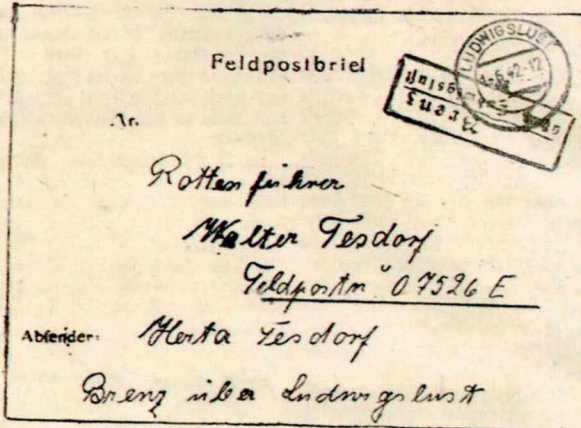 Feldpostbrief
LUDWIGSLUST
6.42-12
Brenz
An
Rottenführer
Walter Tesdorf
Feldpostn° 07526 E
Absender: Herta Tesdorf
Brenz über Ludwigslust